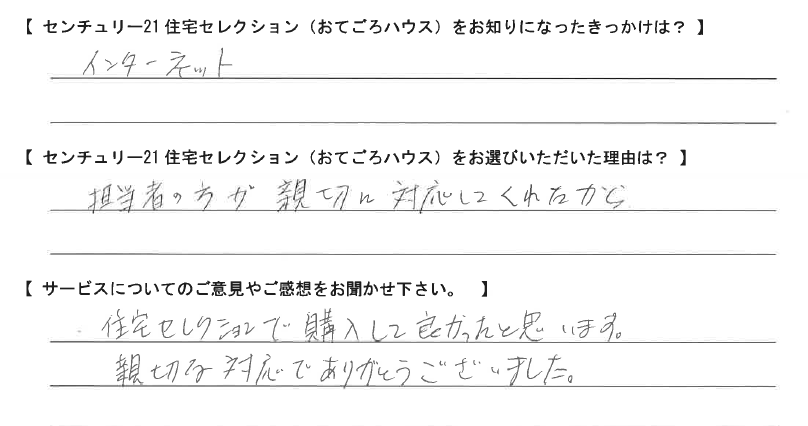 【 センチュリー21 住宅セレクション（おてごろハウス）をお知りになったきっかけは？ 】
インターネット
【 センチュリー21 住宅セレクション（おてごろハウス）をお選びいただいた理由は？ 】
担当者の方が 親切に 対応してくれたから
【 サービスについてのご意見やご感想をお聞かせ下さい。 】
住宅セレクションで購入して良かったと思います。
親切な対応でありがとうございました。